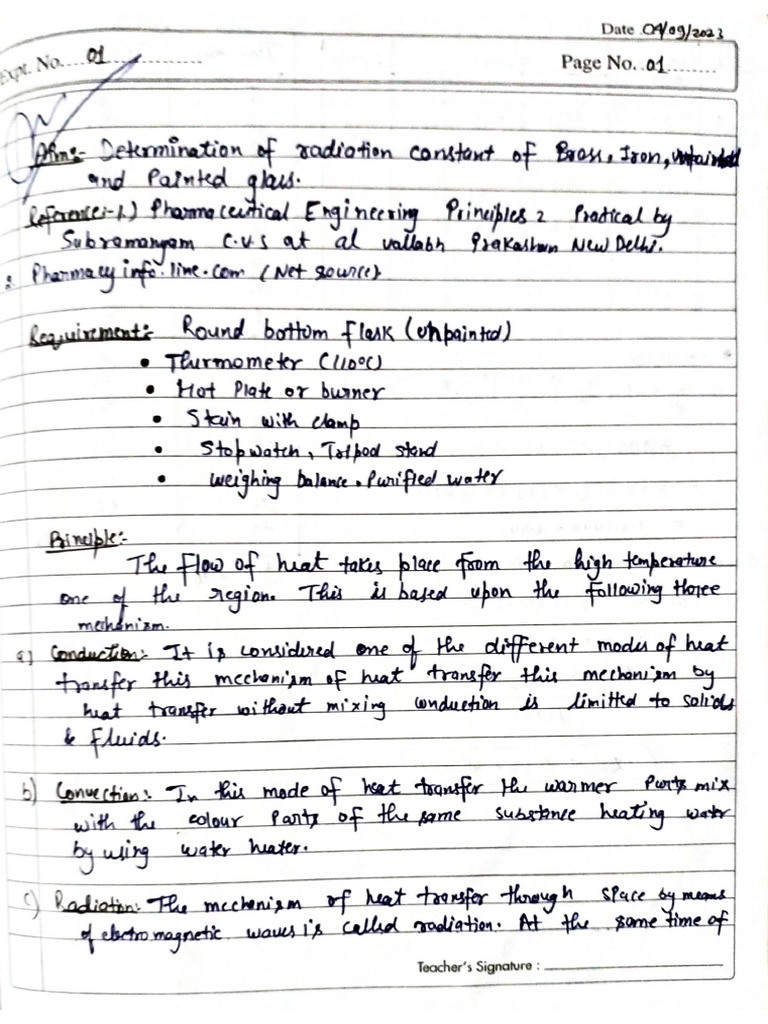 Date 04/09/2023
Expt. No. 01
Page No. 01
Aim:- Determination of radiation constant of Brass, Iron, unpainted
and Painted glass.
Reference:-1.) Pharmaceutical Engineering Principles 2 Pratical by
Subramanyam C.V.S at al vallabh Prakashan New Delhi.
2 Pharmacy info.line.com (Net source)
Requirement:- Round bottom flask (unpainted)
• Thurmometer (110°C)
• Hot Plate or burner
• Stain with clamp
• Stopwatch, Tripod stand
• weighing balance. Purified water
Principle:-
The flow of heat takes place from the high temperature
one of the region. This is based upon the following three
mechanism.
a) Conduction:- It is considered one of the different modes of heat
transfer this mechanism of heat transfer this mechanism by
heat transfer without mixing conduction is limitted to solids
& fluids.
b) Convection:- In this mode of heat transfer the warmer parts mix
with the colour parts of the same substance heating water
by using water heater.
c) Radiation:- The mechanism of heat transfer through space by means
of electromagnetic waves is called radiation. At the same time of
Teacher's Signature :